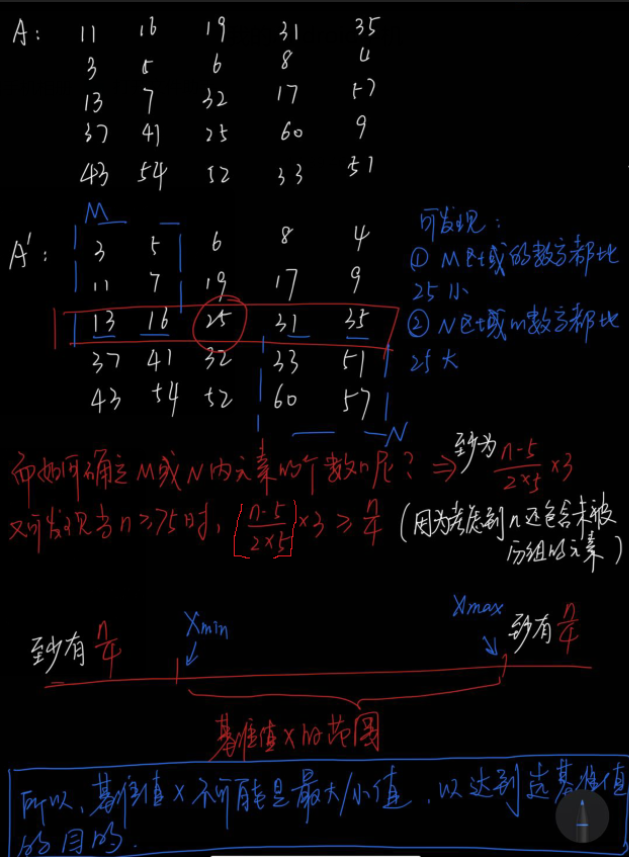 A: 11 16 19 31 35
3 5 6 8 4
13 7 32 17 57
37 41 25 60 9
43 54 52 33 51
M
A': 3 5 6 8 4
11 7 19 17 9
13 16 25 31 35
37 41 32 33 51
43 54 52 60 57
N
可发现:
① M区域的数字都比
25小
② N区域的数字都比
25大
而如何确定M或N内元素的个数呢? ⇒ 至少为 (n-5)/(2×5) ×3
又可发现当n≥75时, [(n-5)/(2×5)]×3 ≥ n/4 (因为考虑到n还包含未被
分组的元素)
至少有 n/4 Xmin Xmax 至少有 n/4
基准值X的范围
所以, 基准值X不可能是最大/小值, 以达到选基准值
的目的.